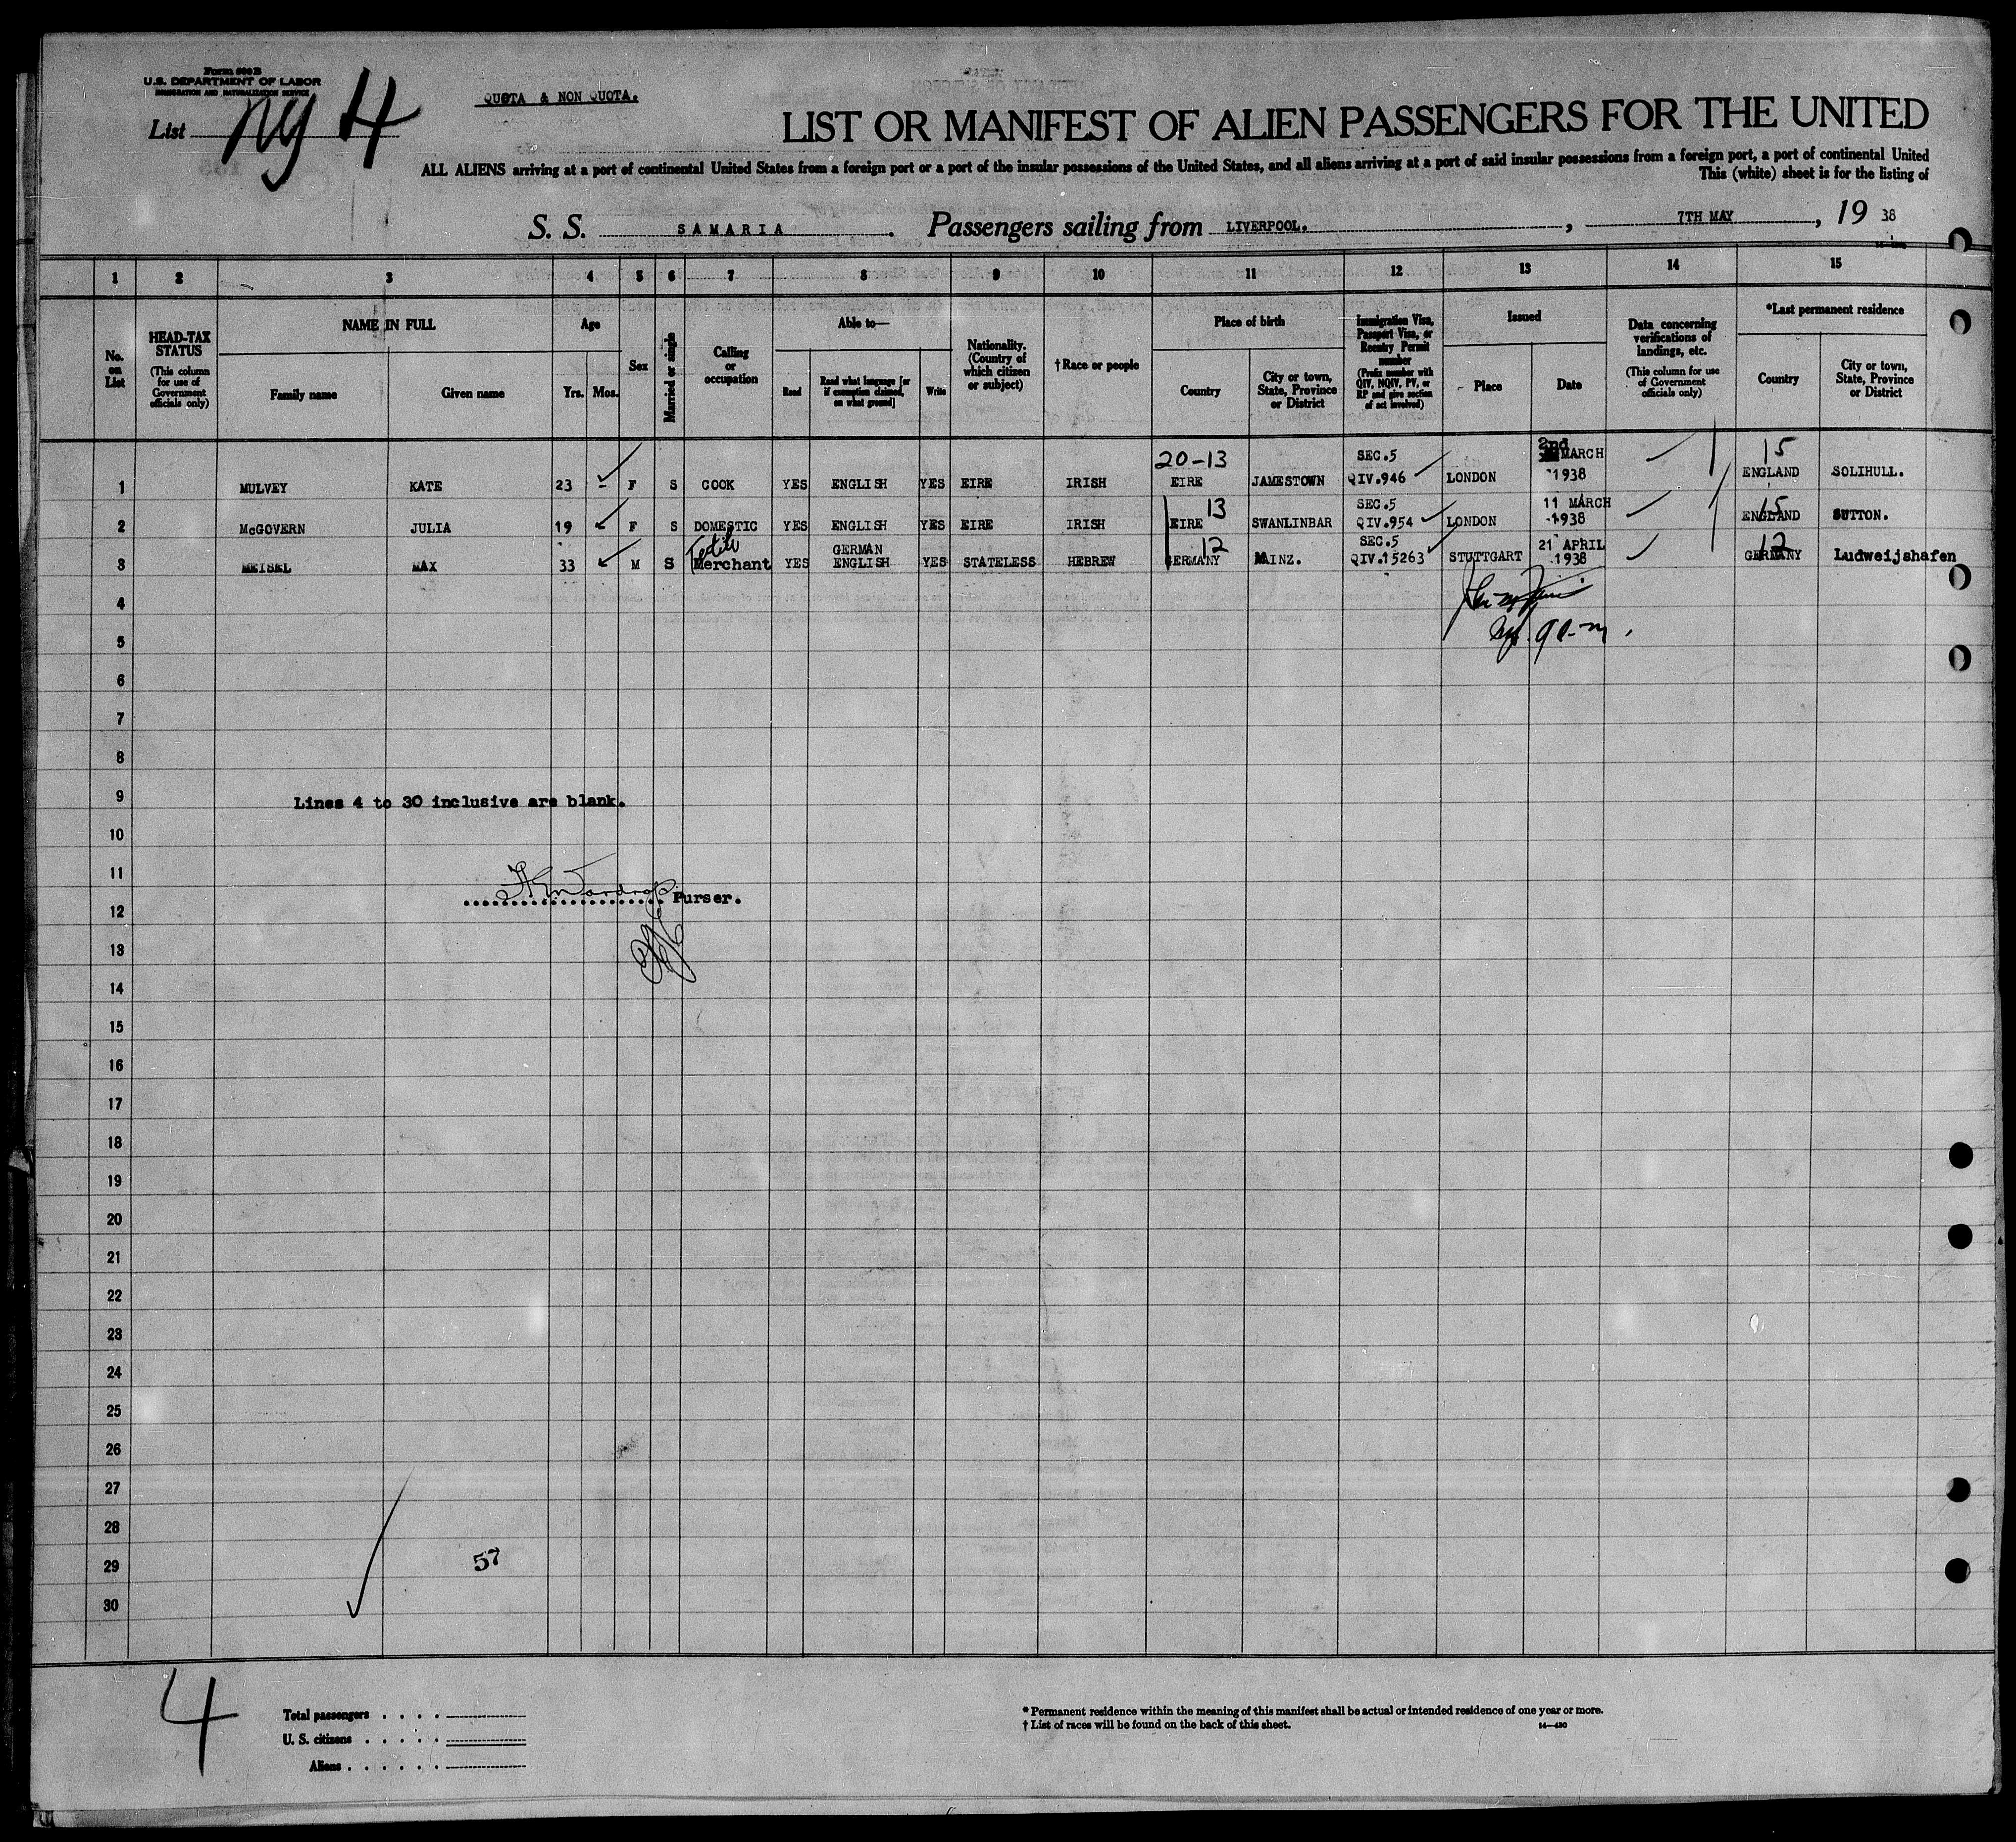 Form 500 B
U.S. DEPARTMENT OF LABOR
IMMIGRATION AND NATURALIZATION SERVICE
QUOTA & NON QUOTA.
List ny 4
LIST OR MANIFEST OF ALIEN PASSENGERS FOR THE UNITED
ALL ALIENS arriving at a port of continental United States from a foreign port or a port of the insular possessions of the United States, and all aliens arriving at a port of said insular possessions from a foreign port, a port of continental United
This (white) sheet is for the listing of
S. S. SAMARIA. Passengers sailing from LIVERPOOL., 7TH MAY, 19 38
1 2 3 4 5 6 7 8 9 10 11 12 13 14 15
No. on List
HEAD-TAX STATUS (This column for use of Government officials only)
NAME IN FULL
Family name
Given name
Age
Yrs. Mos.
Sex
Married or single
Calling or occupation
Able to—
Read
Read what language [or if exemption claimed, on what ground]
Write
Nationality. (Country of which citizen or subject)
† Race or people
Place of birth
Country
City or town, State, Province or District
Immigration Visa, Passport Visa, or Reentry Permit number (Prefix number with QIV, NQIV, PV, or RP and give section of act involved)
Issued
Place
Date
Data concerning verifications of landings, etc. (This column for use of Government officials only)
*Last permanent residence
Country
City or town, State, Province or District
20-13 SEC.5 2nd MARCH 15
1 MULVEY KATE 23 - F S COOK YES ENGLISH YES EIRE IRISH EIRE JAMESTOWN QIV.946 LONDON 1938 ENGLAND SOLIHULL.
13 SEC.5 11 MARCH 15
2 McGOVERN JULIA 19 F S DOMESTIC YES ENGLISH YES EIRE IRISH EIRE SWANLINBAR QIV.954 LONDON 1938 ENGLAND SUTTON.
Textile GERMAN 12 SEC.5 21 APRIL 12
3 MEISEL MAX 33 M S Merchant YES ENGLISH YES STATELESS HEBREW GERMANY MAINZ. QIV.15263 STUTTGART 1938 GERMANY Ludweijshafen
4
5
6
7
8
9 Lines 4 to 30 inclusive are blank.
10
11
Wardrop Purser.
12
13
14
15
16
17
18
19
20
21
22
23
24
25
26
27
28
29 57
30
4
Total passengers
U. S. citizens
Aliens
* Permanent residence within the meaning of this manifest shall be actual or intended residence of one year or more.
† List of races will be found on the back of this sheet. 14—430